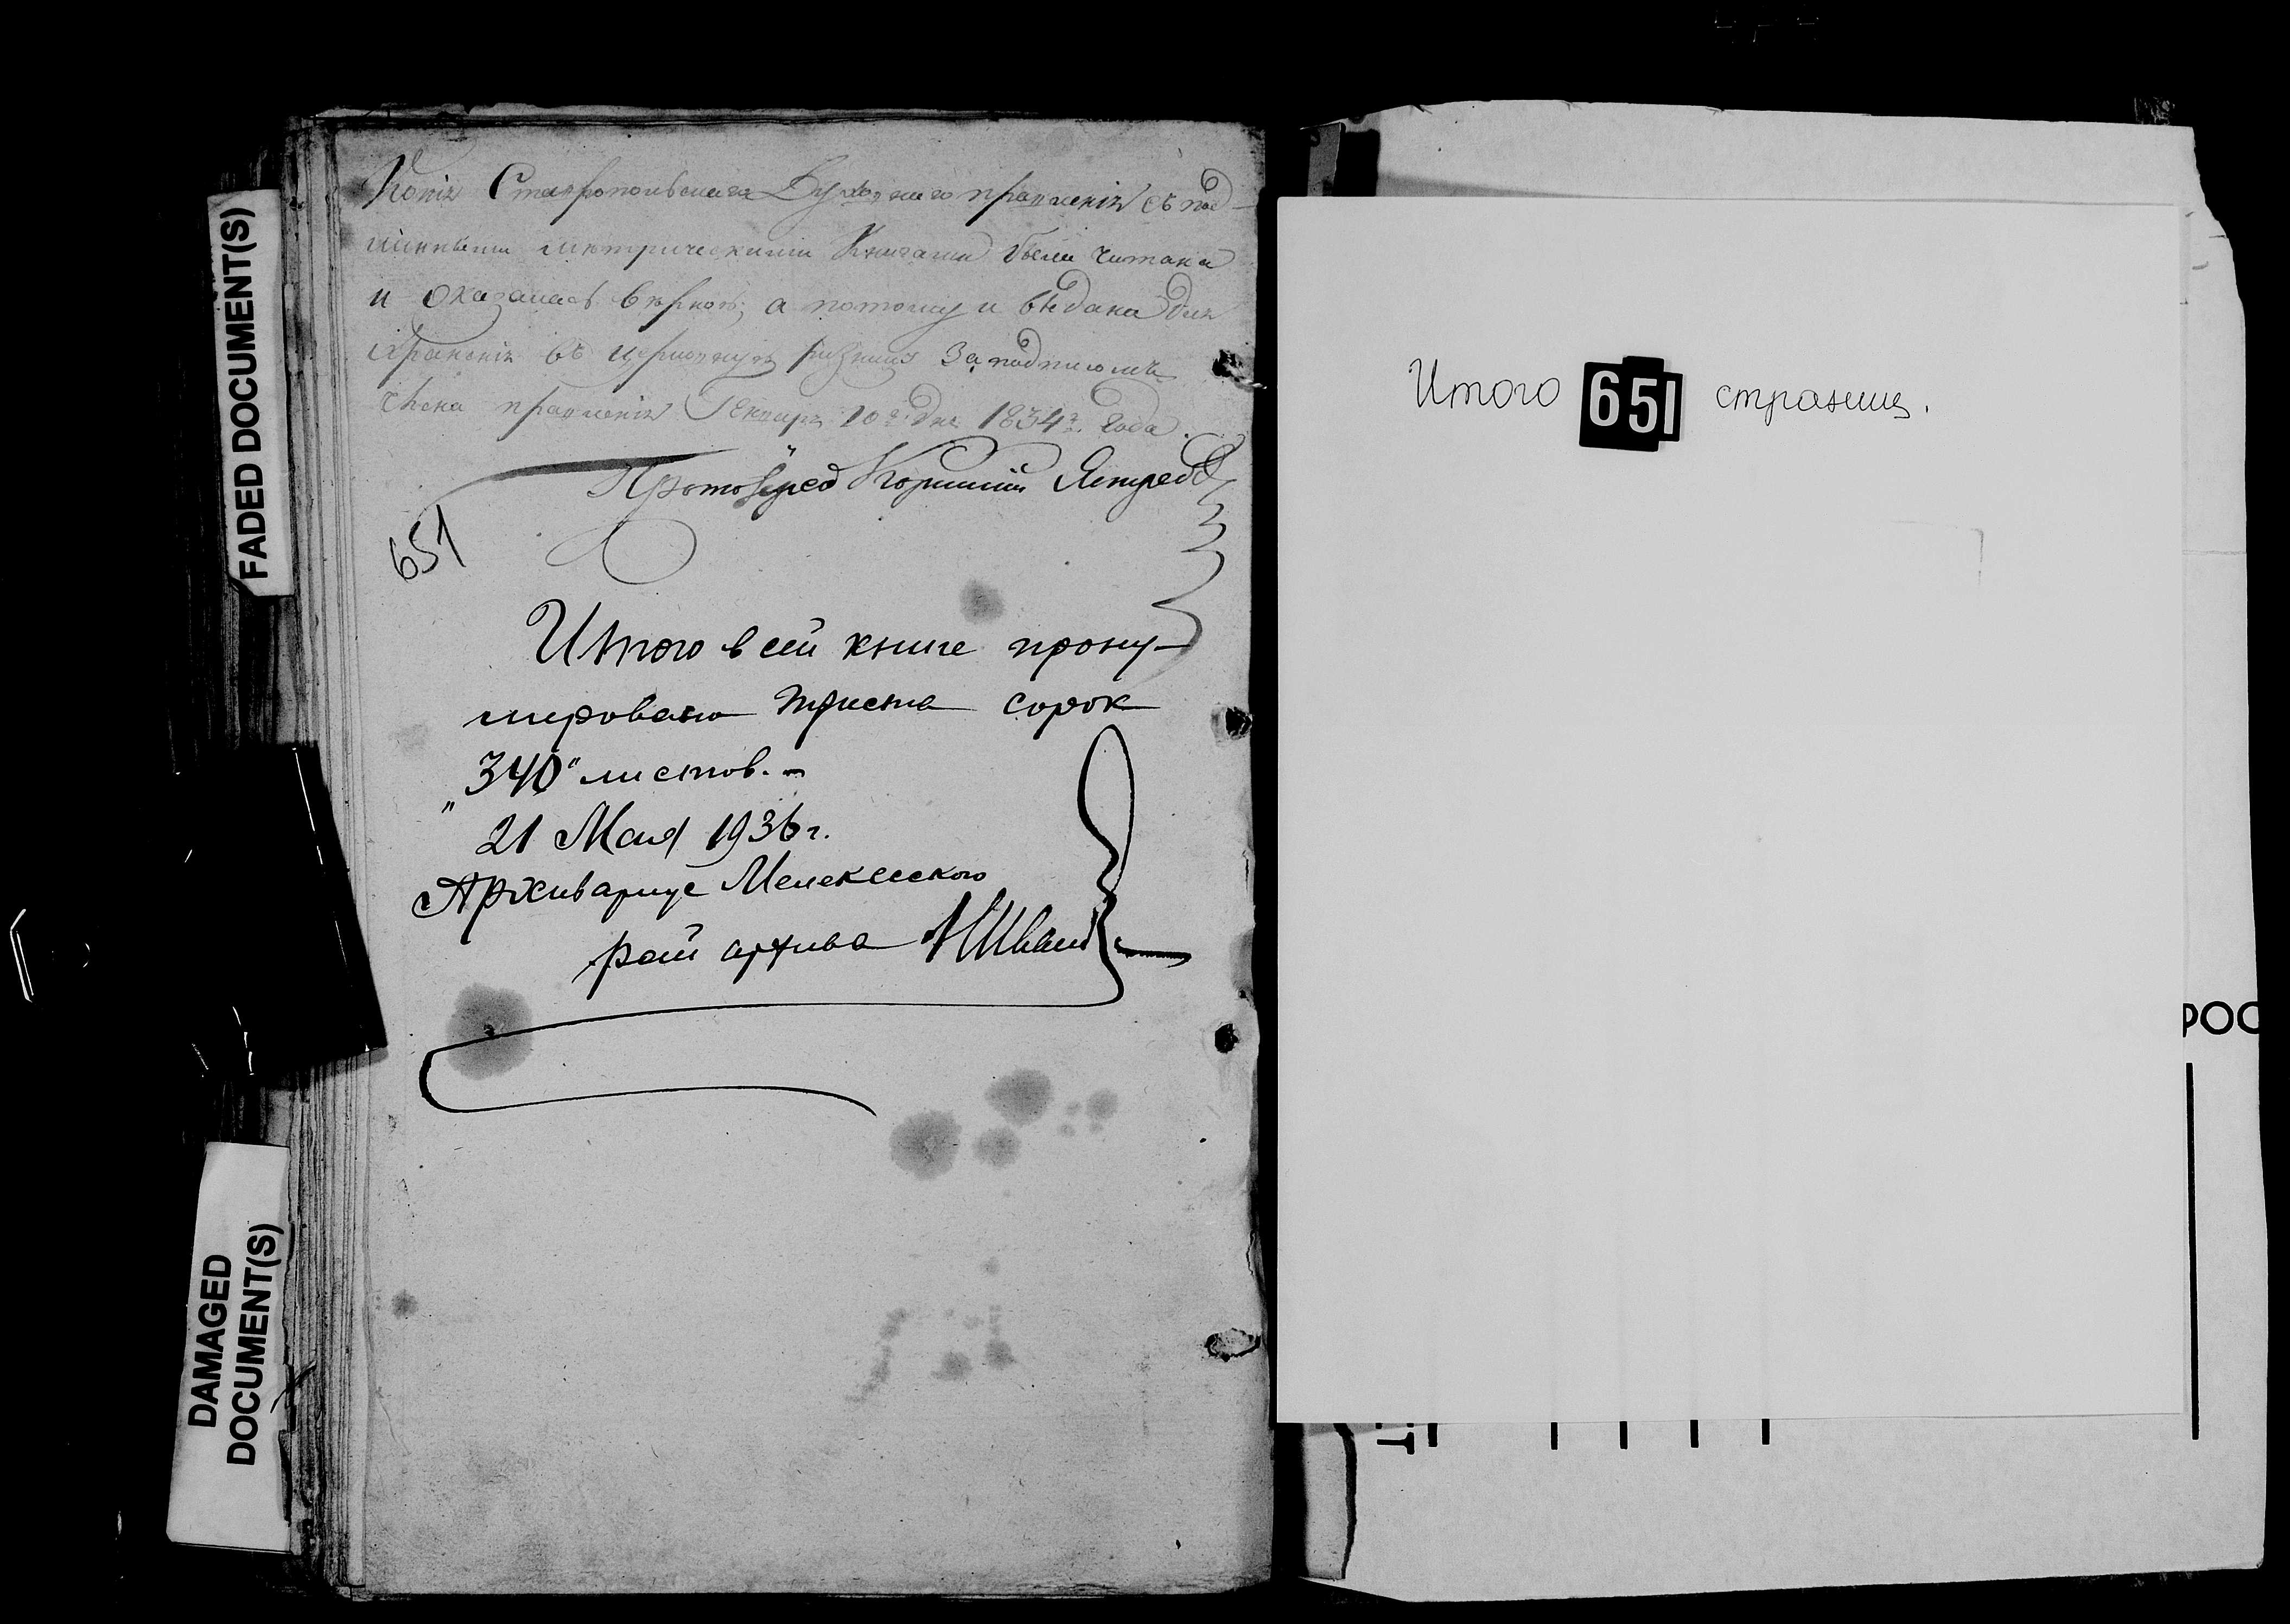 FADED DOCUMENT(S)
DAMAGED
DOCUMENT(S)
Копія Ставропольскаго Духовнаго правленія съ под-
линными метрическими Книгами были читана
и оказалась вѣрною; а потому и выдана для
храненія въ церковную ризницу За подписомъ
члена правленія Генваря 10го дня 1834го года.
Протоіерей Ястребов
651
Итого в сей книге прону-
мировано триста сорок
"340" листов. -
21 Мая 1936 г.
Архивариус Мелекесского
рай архива
Итого 651 страниц.
РОС